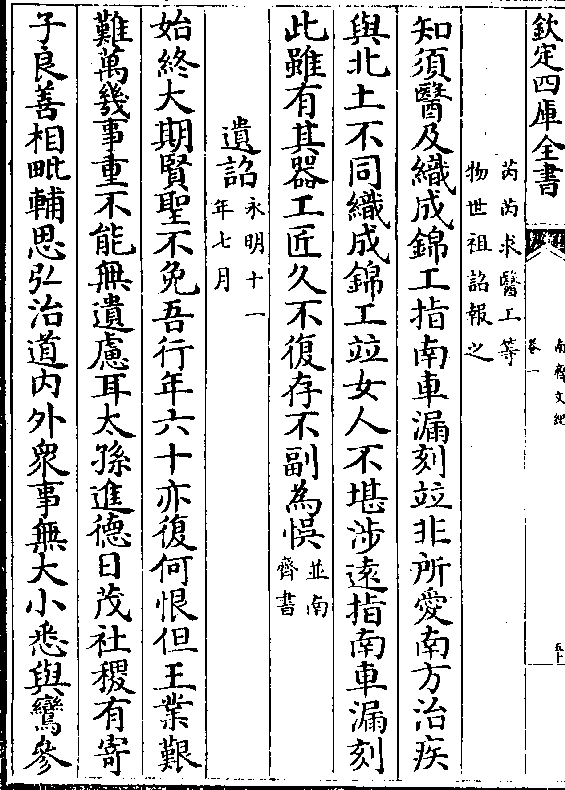 欽定四庫全書
南齊文紀
卷一
五十
芮芮求醫工等
物世祖詔報之
知須醫及織成錦工指南車漏刻竝非所愛南方治疾
與北土不同織成錦工竝女人不堪涉遠指南車漏刻
此雖有其器工匠久不復存不副為悞並南
齊書
遺詔永明十一
年七月
始終大期賢聖不免吾行年六十亦復何恨但王業艱
難萬幾事重不能無遺慮耳太孫進德日茂社稷有寄
子良善相毗輔思弘治道内外衆事無大小悉與鸞參